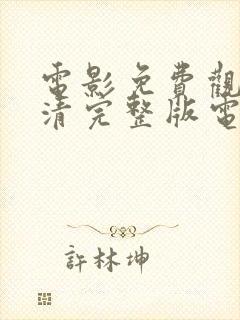 電影免費觀
清完整版電
許林坤